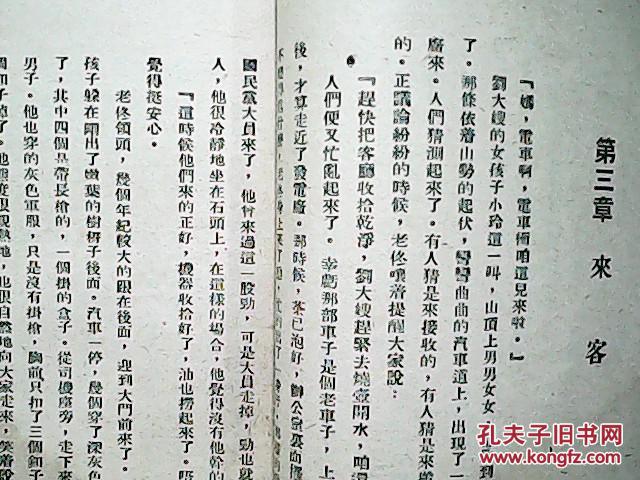 第三章 來客
『媽，電車啊，電車衝咱這兒來啦。』
劉大嫂的女孩子小玲這一叫，山頂上男男女女
到
了。那條依着山勢的起伏，彎彎曲曲的汽車道上，出現了一
廠來。人們猜測起來了。有人猜是來接收的，有人猜是來
的。正議論紛紛的時候，老佟嚷着提醒大家說：
『趕快把客廳收拾乾淨，劉大嫂趕緊去燒壺開水，咱還
人們便又忙亂起來了。幸虧那部車子是個老車子，上
後，才算走近了發電廠。那時候，茶已泡好，辦公室裏面
國民黨大員來了，他曾來過這一股勁，可是大員走掉，勁也就
人，他很冷靜地坐在石頭上，在這樣的場合，他覺得沒有他幹的
『這時候他們來的正好，機器收拾好了，油也撈起來了。
覺得挺安心。
老佟領頭，幾個年紀較大的跟在後面，迎到大門前來了。
孩子躲在剛出了嫩葉的樹榜子後面。汽車一停，幾個穿了深灰色
了，其中四個是帶長槍的，一個掛的盒子。從司機座旁，走下來
男子。他也穿的灰色軍服，只是沒有掛槍，胸前只扣了三個鈕子
個扣子掉了。他態度很親熱地，也很自然地向大家走來，笑着說
孔夫子旧书网